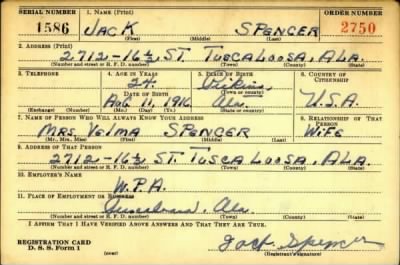 SERIAL NUMBER 1. NAME (Print) ORDER NUMBER
1586 JACK SPENCER 2750
(First) (Middle) (Last)
2. ADDRESS (Print)
2712-16½ ST. TUSCALOOSA, ALA.
(Number and street or R. F. D. number) (Town) (County) (State)
3. TELEPHONE 4. AGE IN YEARS 5. PLACE OF BIRTH 6. COUNTRY OF CITIZENSHIP
24
DATE OF BIRTH (Town or county)
Aug 11, 1916 Ala. U.S.A.
(Exchange) (Number) (Mo.) (Day) (Yr.) (State or country)
7. NAME OF PERSON WHO WILL ALWAYS KNOW YOUR ADDRESS 8. RELATIONSHIP OF THAT PERSON
MRS. VELMA SPENCER WIFE
(Mr., Mrs., Miss) (First) (Middle) (Last)
9. ADDRESS OF THAT PERSON
2712-16½ ST. TUSCALOOSA, ALA.
(Number and street or R. F. D. number) (Town) (County) (State)
10. EMPLOYER'S NAME
W.P.A.
11. PLACE OF EMPLOYMENT OR BUSINESS
Tuscaloosa, Ala.
(Number and street or R. F. D. number) (Town) (County) (State)
I AFFIRM THAT I HAVE VERIFIED ABOVE ANSWERS AND THAT THEY ARE TRUE.
REGISTRATION CARD
D. S. S. Form 1 Jack Spencer
(Registrant's signature)